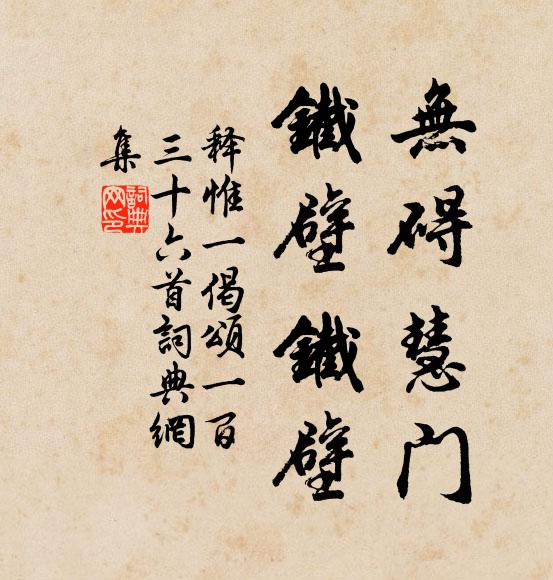 無碍慧门
鐵壁鐵壁
释惟一偈頌一百
三十六首詞典網
集
詞典网印